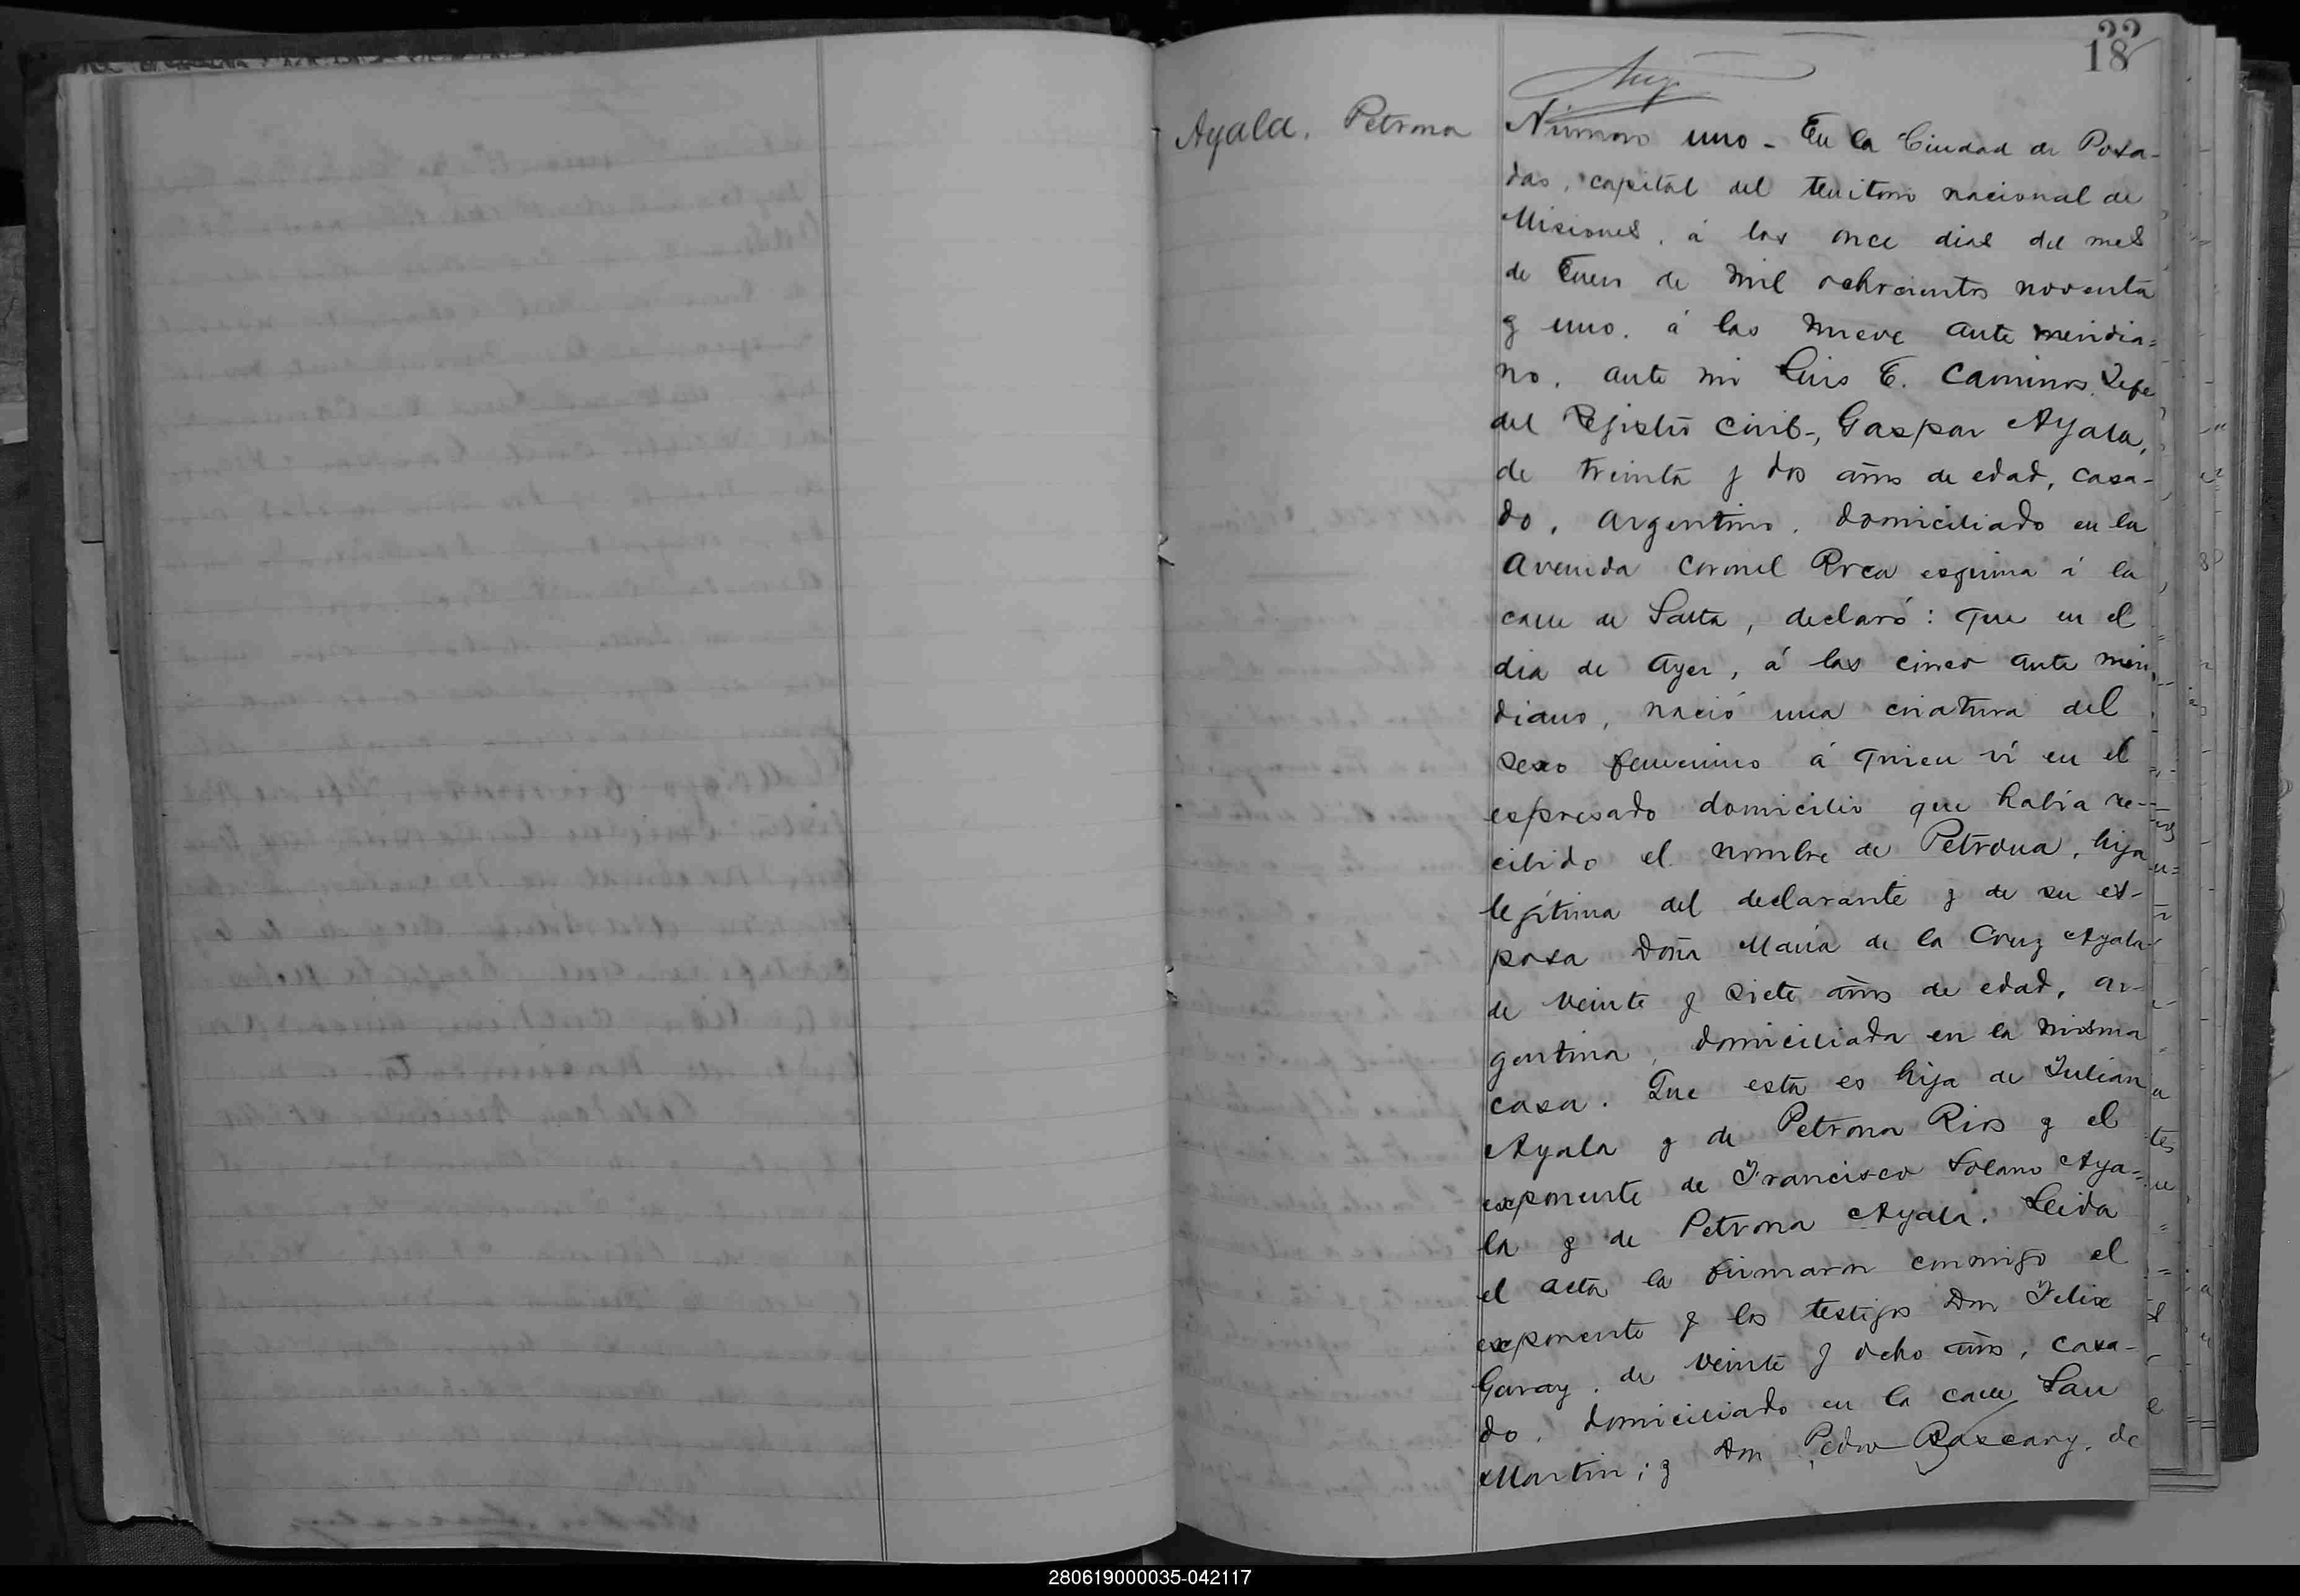 22
18
Ayala, Petrona
Número uno - En la Ciudad de Posa-
das, capital del territorio nacional de
Misiones, á los once dias del mes
de Enero de mil ochocientos noventa
y uno, á las nueve ante meridia=
no, ante mi Luis E. Caminos, Jefe
del Rejistro Civil-, Gaspar Ayala,
de treinta y dos años de edad, casa-
do, argentino, domiciliado en la
Avenida Coronel Roca esquina á la
calle de Salta, declaró: que en el
dia de ayer, á las cinco ante meri
diano, nació una criatura del
sexo femenino á quien ví en el
espresado domicilio que había re-
cibido el nombre de Petrona, hija
lejítima del declarante y de su es-
posa Doña María de la Cruz Ayala
de veinte y siete años de edad, ar-
gentina, domiciliada en la misma
casa. Que esta es hija de Julian
Ayala y de Petrona Rios y el
exponente de Francisco Solano Aya=
la y de Petrona Ayala. Leida
el acta la firmaron conmigo el
exponente y los testijos Don Felix
Garay, de veinte y ocho años, casa-
do, domiciliado en la calle San
Martin; y Don Pedro Bascary, de
280619000035-042117